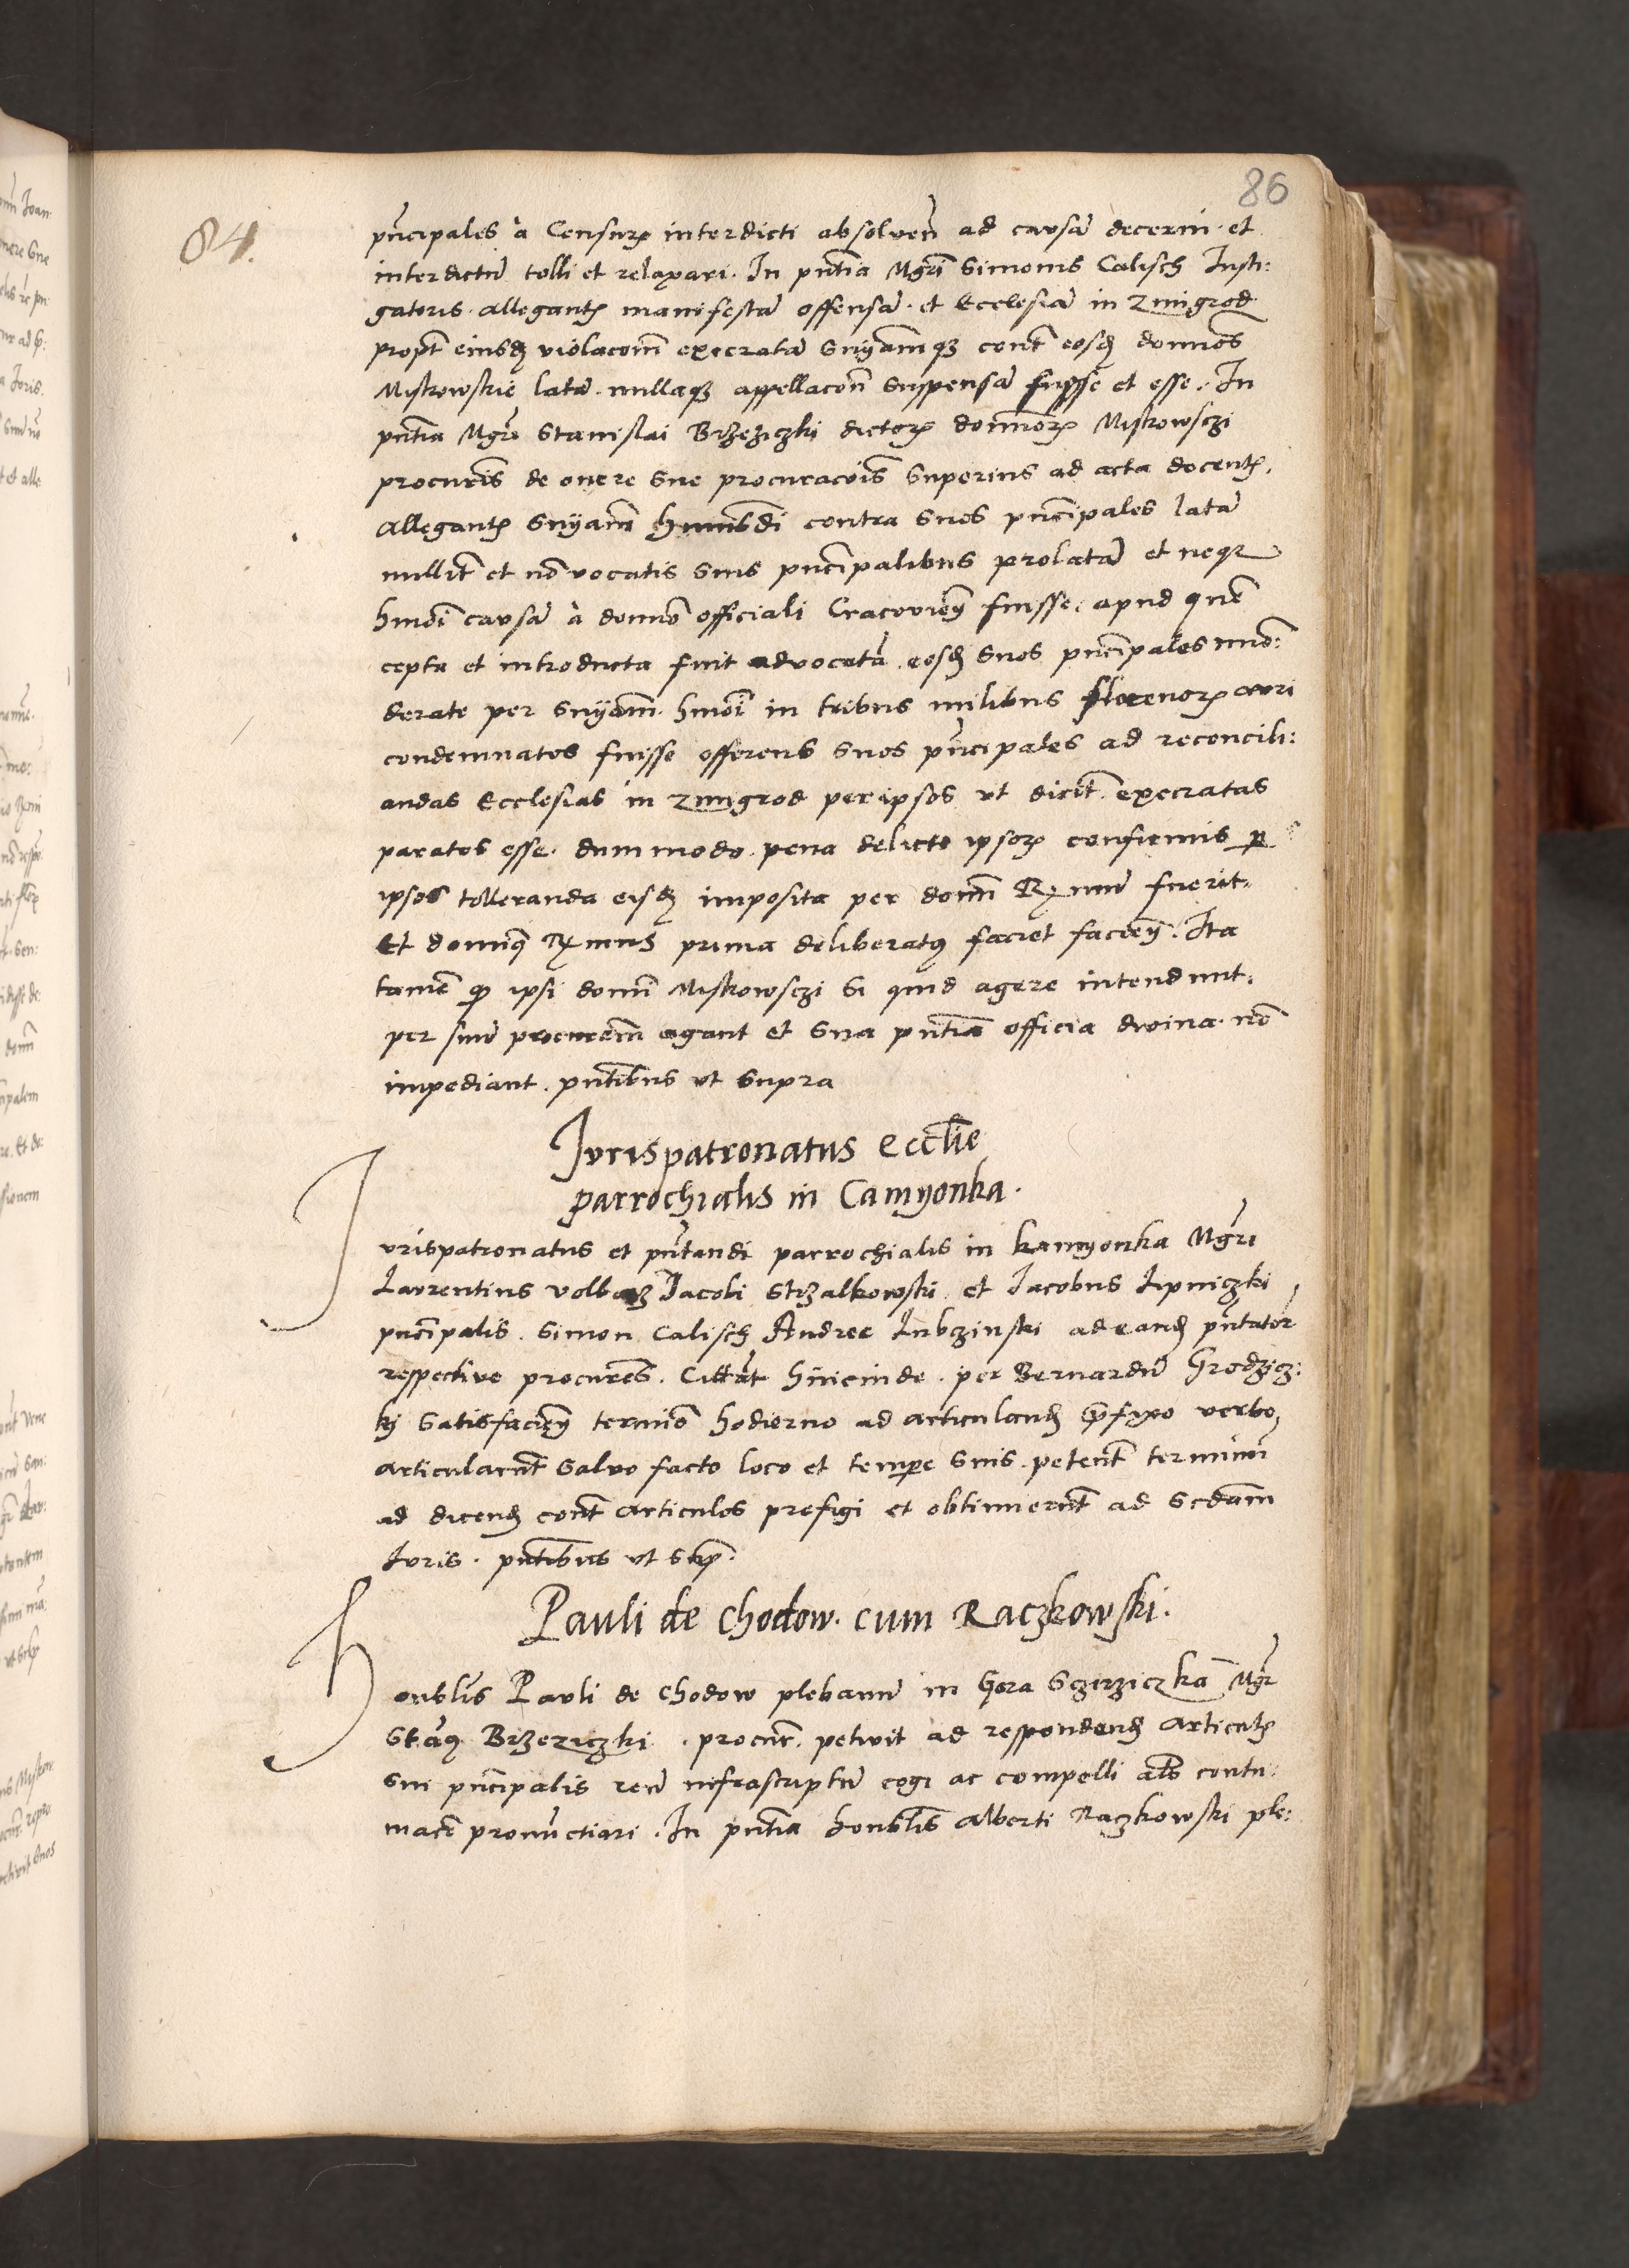 86
84.
pn̄cipales à Censurꝝ interdicti absoluen̄ ad causā decerni · et
interdictū tolli et relaxari · In pn̄tia Mgrī Simonis Calisch Insti:
gatoris · allegantꝭ manifestā offensā · et Ecclesiā in Zmigrod
propt̄ eiusdꝫ violacōnem̄ execratā Snīamqꝫ cont̄ eosdꝫ domīos
Miskowskie latā · nullaqꝫ appellacōn̄ suspensā fuisse et esse · In
pn̄tia Mgrī Stanislai Brzeziczki dictorꝝ domīorꝝ Miskowsczi
procurīs de onere Sue procuracōis Superius ad acta docentꝭ ·
Allegantꝭ Snīam̄ hmōi contra Suos pn̄cipales latā
nullit̄ et nō vocatis Suis pn̄cipalibus prolatā et neqꝫ
hmōi causā à domīo officiali Cracovieñ fuisse · apud quē
cepta et introducta fuit advocatā · eosdꝫ Suos pn̄cipales imō:
derate per Snīam̄ · hmōi in tribus milibus florenorꝝ auri
condemnatos fuisse offerens Suos pn̄cipales ad reconcili:
andas Ecclesias in Zmigrod per ipsos vt dicit̄ · execratas
paratos esse · dummodo · pena delicto ipsorꝝ conformis ꝑ
ipsos tolleranda eisdꝫ imposita per domn̄ Rx̄mum fuerit ·
Et domīqꝫ Rx̄mus prima deliberatꝰ faciet facieñ · Ita
tamē ꝙ ipsi domī Miskowsczi Si quid agere intendunt ·
per suū procurem̄ agant et Sua pn̄tiā officia diuina · nō
impediant · pn̄tibus vt supra
Jurispatronatus eccl̄ie
parrochialis in Camyonka ·
Jurispatronatus et pn̄tandi parrochialis in kamyonka Mgrī
Laurentius Jacobi Strzalkowski et Jacobus Lipniczki
pn̄cipalis · Simon Calisch Andree Lubczinski ad eandꝫ pn̄tator̄
respective procurēs · Citat̄ hincinde · per Bernardū Grodzicz:
kj Satisfacieñ termīo hodierno ad articulandꝫ p̄fixo verbo
articularūt Salvo facto loco et tempe Suis · petent̄ terminū
ad dicendꝫ cont̄ articulos prefigi et obtinuerūt ad Scdam̄
Juris · pn̄tibus vt Sup̄ ·
Pauli de Chodow · cum Raczkowski ·
Honbl̄is Pauli de Chodow plebanū in Gora Sczirziczkā Mgr̄
Stāꝰ Brzeziczki · procur̄ · petivit ad respondendꝫ articulꝭ
Sui pn̄cipalis reū infrascriptū cogi ac compelli als̄ contu:
macē pronūctiari · In pn̄tia honbl̄is Alberti Raczkowski ple: